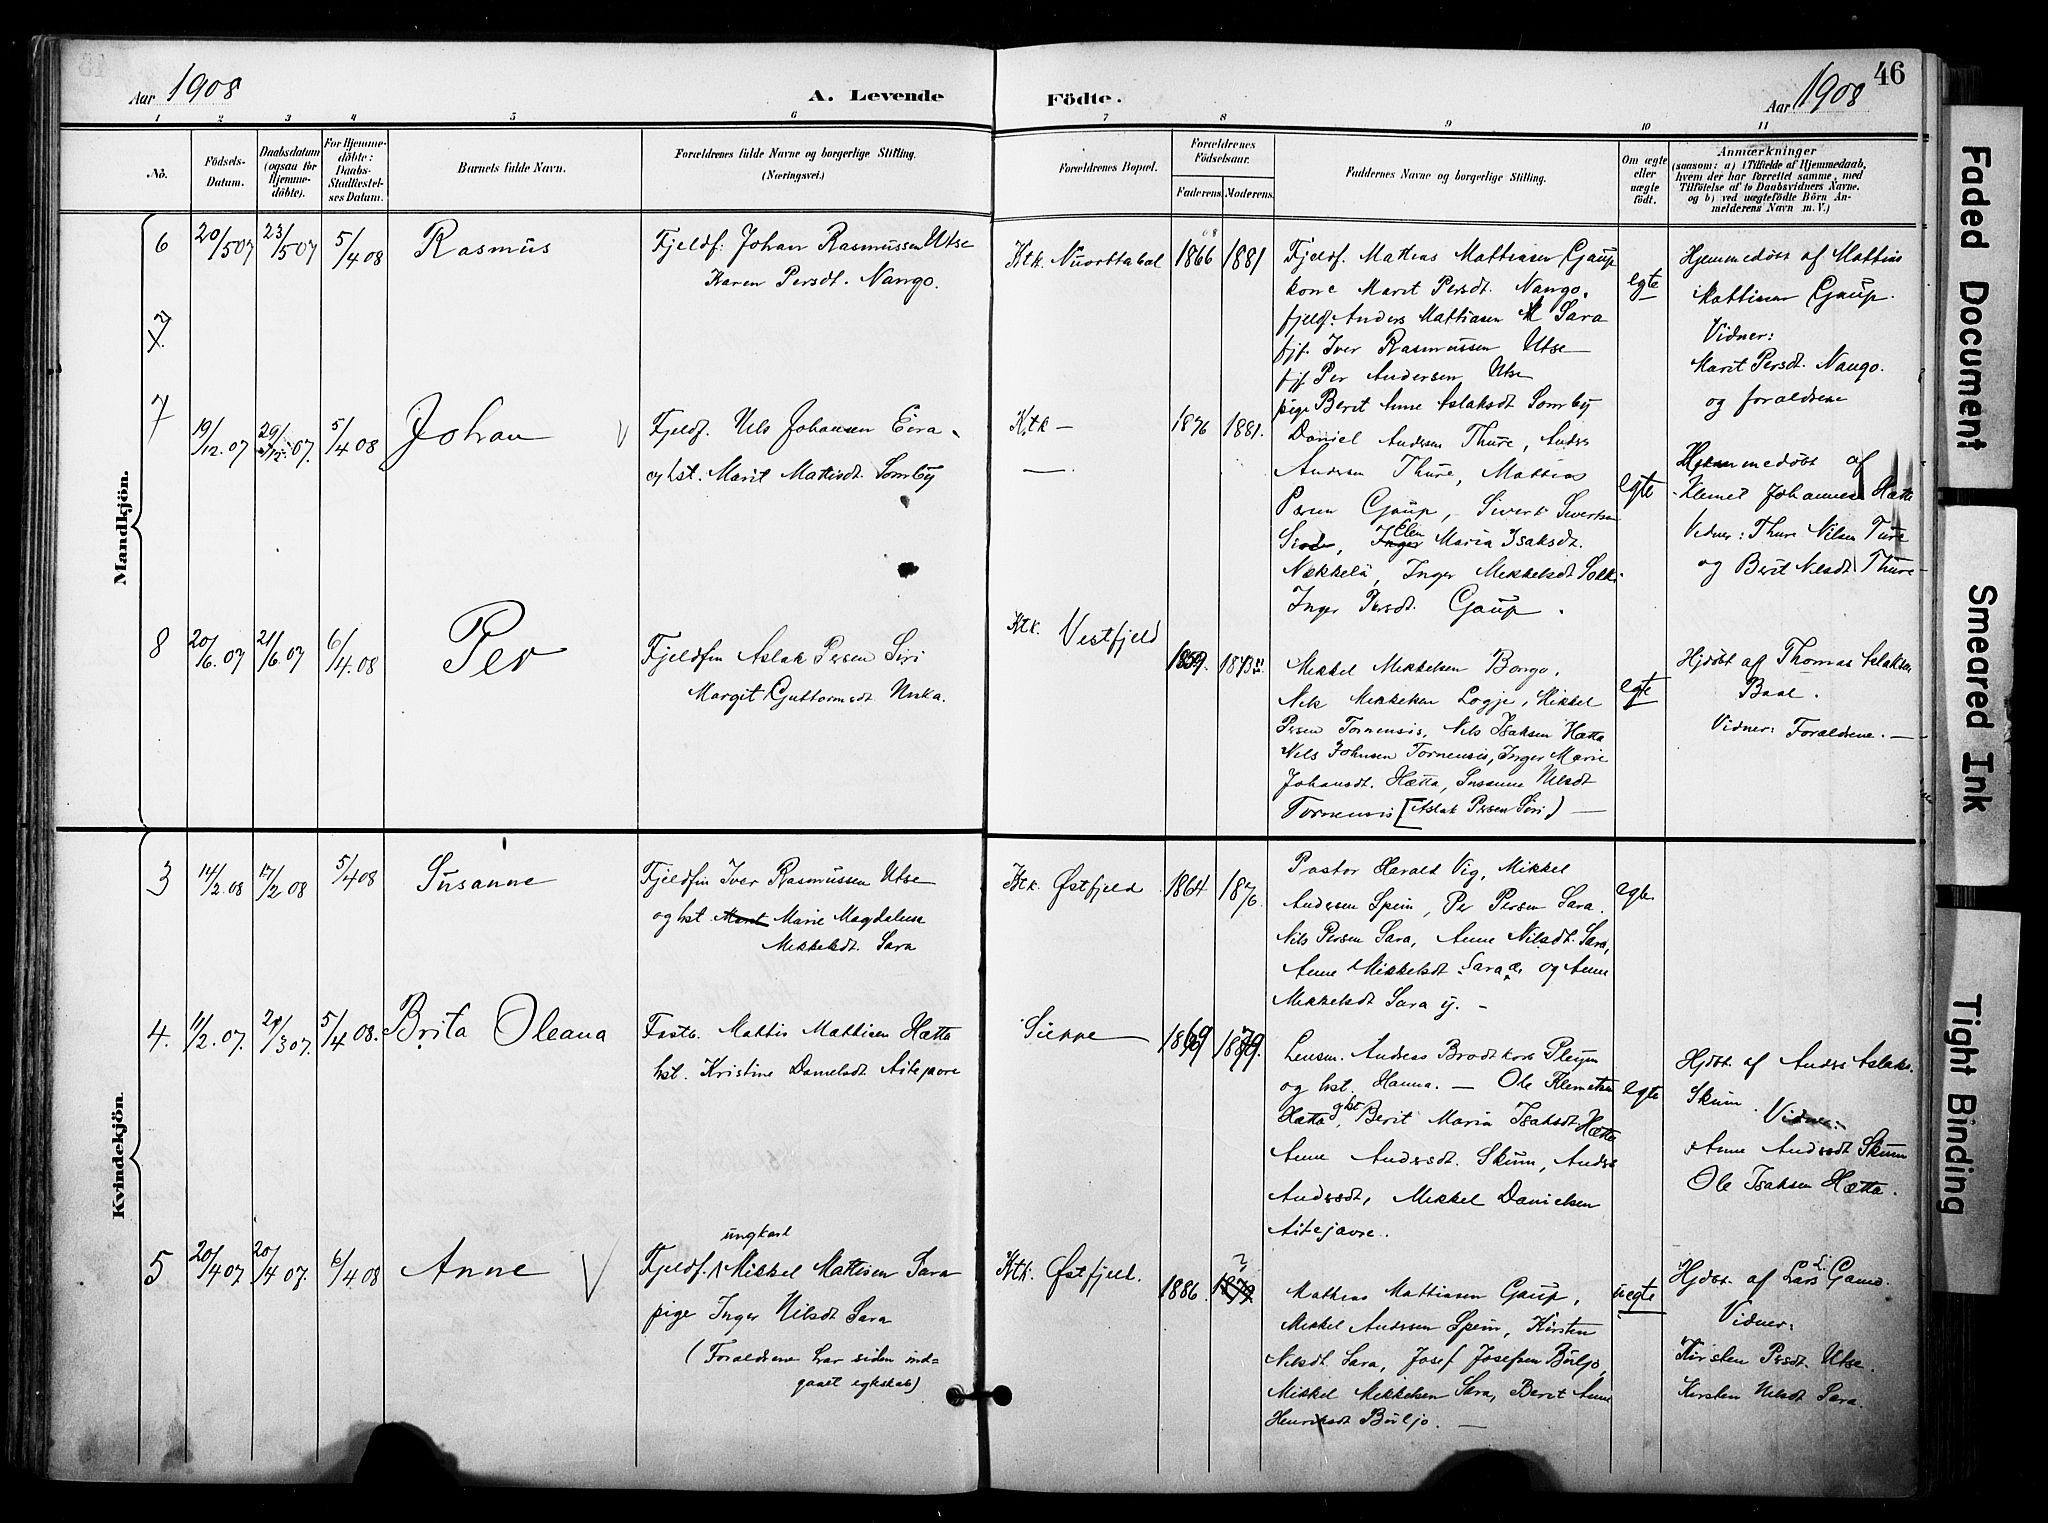 46
Aar 1908
A. Levende
Födte.
Aar 1908
1 2 3 4 5 6 7 8 9 10 11
No.
Födsels-
Datum.
Daabsdatum
(ogsaa for
Hjemme-
döbte).
For Hjemme-
döbte:
Daabs-
Stadfæstel-
ses Datum.
Barnets fulde Navn.
Forældrenes fulde Navne og borgerlige Stilling.
(Næringsvei.)
Forældrenes Bopæl.
Forældrenes
Födselsaar.
Faderens.
Moderens.
Faddernes Navne og borgerlige Stilling.
Om ægte
eller
uægte
födt.
Anmærkninger
(saasom: a) i Tilfælde af Hjemmedaab,
hvem der har forrettet samme, med
Tilföielse af to Daabsvidners Navne.
og b) ved uægtefödte Börn An-
melderens Navn m. V.)
Mandkjön.
6
20/5 07
23/5 07
5/4 08
Rasmus
Fjeldf: Johan Rasmussen Utse
Karen Persdt. Nango.
Ktk. Nuorttabal
1866
1881
Fjeldf. Mathias Mathiasen Gaup
kone Marit Persdt. Nango,
fjeldf: Anders Mathiasen Sara
fjf. Iver Rasmussen Utse
fjf Per Andersen Utse
pige Berit Anne Aslaksdt Somby
egte
Hjemmedøbt af Mattias
Mattisen Gaup.
Vidner:
Marit Persdt. Nango.
og forældrene
7
7
19/12 07
29/12 07.
5/4 08
Johan
Fjeldf. Nils Johansen Eira
og hst. Marit Mattisdt. Somby
Ktk —
1876
1881.
Daniel Andersen Thure, Anders
Andersen Thure, Mathias
Persen Gaup, Sivert Sivertsen
Elen
Inger Maria Isaksdt.
Nækkelä, Inger Mikkelsdt
Inger Persdt. Gaup.
egte
Hjemmedøbt af
Klemet Johannes Hætta
Vidner: Thure Nilsen Ture
og Berit Nilsdt. Thure
8
20/6 07
21/6 07
6/4 08
Per
Fjeldfin Aslak Persen Siri
Margit Guttormsdt Nuka.
Ktk. Vestfjeld
1859.
1873
Mikkel Mikkelsen Bongo,
Nils Mikkelsen Logje, Mikkel
Persen Tornensis, Nils Isaksen Hætta
Nils Johnsen Tornensis, Inger Marie
Johansdt. Hætta, Susanna Nilsdt
Tornensis [Aslak Persen Siri) —
egte
Hjdøbt af Thomas Aslaksen
Baal.
Vidner: Forældrene. —
Kvindekjön.
3
14/2 08
17/2 08
5/4 08
Susanne
Fjeldfin Iver Rasmussen Utse
og hst. Marit Marie Magdalena
Mikkelsdt. Sara
Ktk. Østfjeld
1864
1876
Pastor Harald Vig, Mikkel
Andersen Spein, Per Persen Sara.
Nils Persen Sara, Anne Nilsdt. Sara,
Anne Mikkelsdt. Sara æ. og Anne
Mikkelsdt Sara y. —
egte
4.
11/2 07.
21/3 07.
5/4 08.
Brita Oleana
Fastb. Mattis Mattisen Hætta
hst. Kristine Danielsdt Aitejavre
Sieppe
1869
1879.
Lensm. Andreas Brodtkorb Pleym
og hst. Hanna. — Ole Klemetsen
Hætta og hst, Berit Maria Isaksdt Hætta
Anne Andersdt. Skum, Anders
Andersdt, Mikkel Danielsen
Aitejavre.
egte
Hjdøbt af Anders Aslaks.
Skum. Vidner:
Anne Andersdt Skum
Ole Isaksen Hætta.
5
20/4 07.
20/4 07.
6/4 08
Anne
ungkarl
Fjeldf. Mikkel Mattisen Sara
pige Inger Nilsdt Sara
(Forældrene har siden ind-
gaaet egteskab)
Ktk. Østfjeld.
1886.
Mathias Mattiasen Gaup,
Mikkel Andersen Spein, Kirsten
Nilsdt. Sara, Josef Josefsen Buljo,
Mikkel Mikkelsen Sara, Berit Anne
Henriksdt Buljo. —
uegte
Hjdøbt. af Lars
Vidner:
Kirsten Persdt. Utse.
Kirsten Nilsdt Sara.
Faded Document
Smeared Ink
Tight Binding